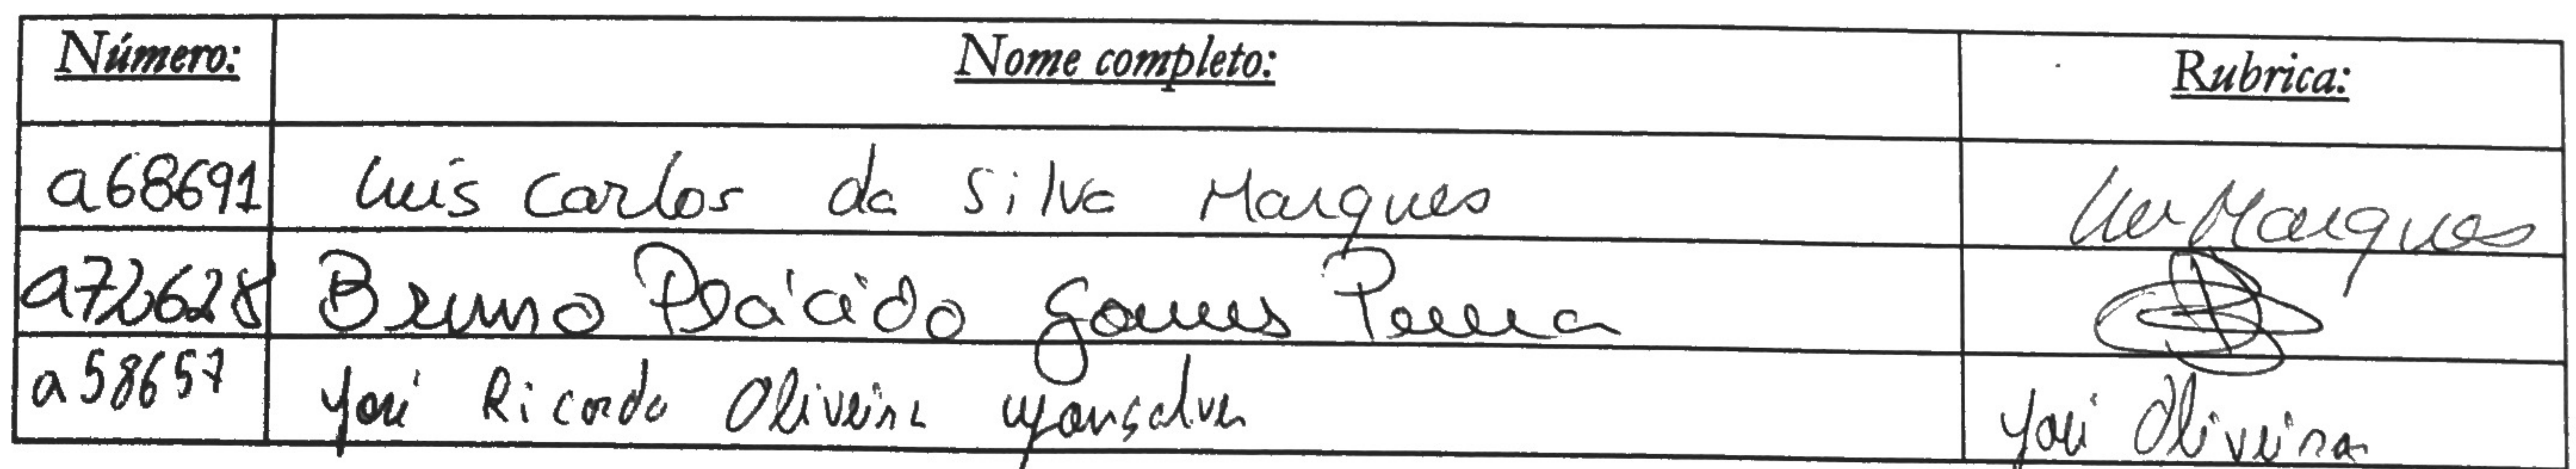 Número: Nome completo: Rubrica:
a68691 Luis Carlos da Silva Marques Luis Marques
a72628 Bruno Plácido Gomes Pereira
a58657 José Ricardo Oliveira Gonçalves José Oliveira